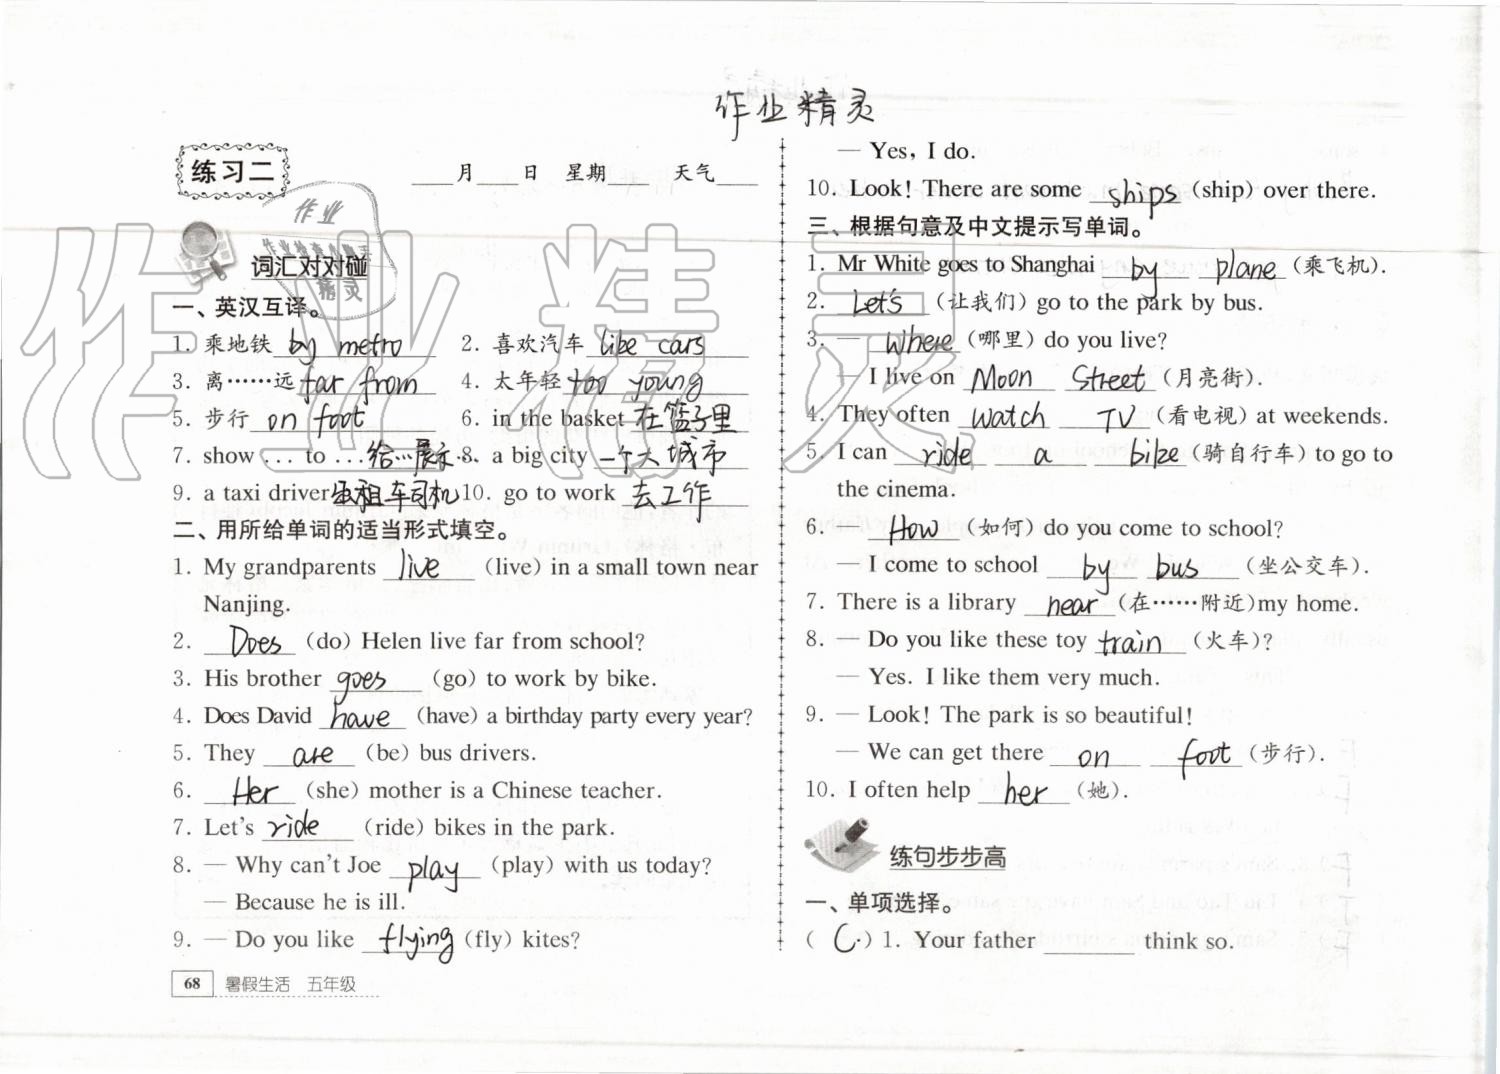 作业精灵
练习二 ____月____日 星期____天气____
作业
作业检查小能手
精灵
词汇对对碰
一、英汉互译。
1. 乘地铁 by metro 2. 喜欢汽车 like cars
3. 离……远 far from 4. 太年轻 too young
5. 步行 on foot 6. in the basket 在篮子里
7. show … to … 给…展示… 8. a big city 一个大城市
9. a taxi driver 出租车司机 10. go to work 去工作
二、用所给单词的适当形式填空。
1. My grandparents live (live) in a small town near
Nanjing.
2. Does (do) Helen live far from school?
3. His brother goes (go) to work by bike.
4. Does David have (have) a birthday party every year?
5. They are (be) bus drivers.
6. Her (she) mother is a Chinese teacher.
7. Let's ride (ride) bikes in the park.
8. — Why can't Joe play (play) with us today?
— Because he is ill.
9. — Do you like flying (fly) kites?
68 暑假生活 五年级
— Yes, I do.
10. Look! There are some ships (ship) over there.
三、根据句意及中文提示写单词。
1. Mr White goes to Shanghai by plane (乘飞机).
2. Let's (让我们) go to the park by bus.
3. — Where (哪里) do you live?
— I live on Moon Street (月亮街).
4. They often watch TV (看电视) at weekends.
5. I can ride a bike (骑自行车) to go to
the cinema.
6. — How (如何) do you come to school?
— I come to school by bus (坐公交车).
7. There is a library near (在……附近)my home.
8. — Do you like these toy train (火车)?
— Yes. I like them very much.
9. — Look! The park is so beautiful!
— We can get there on foot (步行).
10. I often help her (她).
练句步步高
一、单项选择。
( C. ) 1. Your father ________ think so.
作业精灵